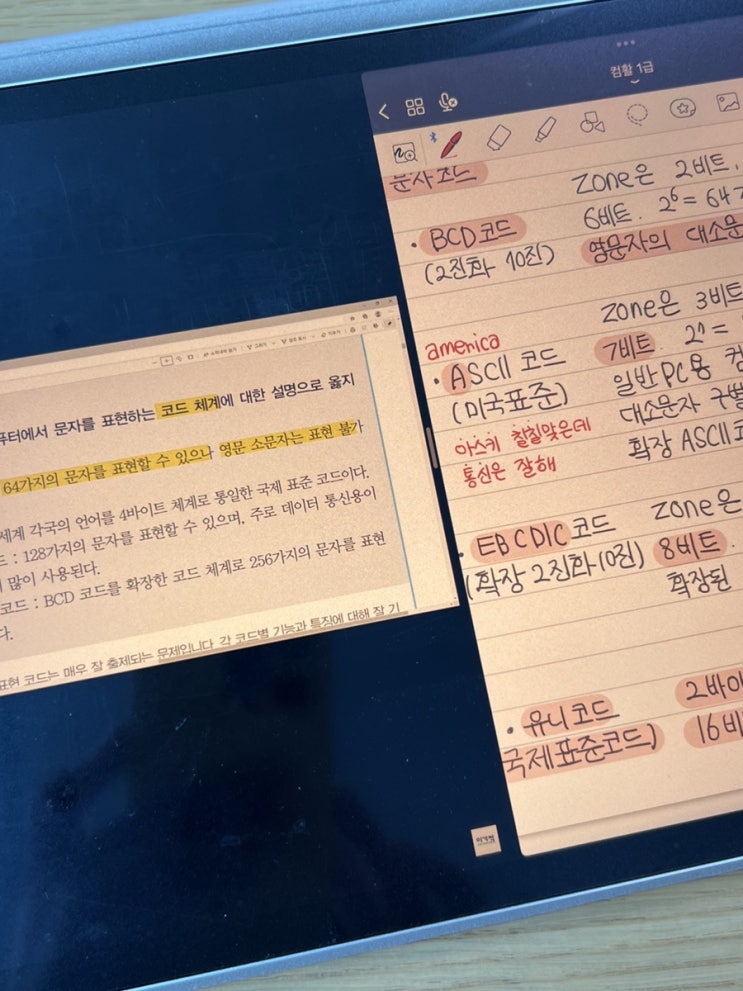 컴활 1급
문자코드
· BCD 코드
(2진화 10진)
Zone은 2비트.
6비트. 2⁶ = 64
영문자의 대소문
america
· ASCII 코드
(미국표준)
아스키 칠칠맞은데
통신은 잘해
Zone은 3비트
7비트.
일반 PC용
대소문자 구별
확장 ASCII
· EBCDIC 코드
(확장 2진화 10진)
Zone은
8비트.
확장된
· 유니코드
국제표준코드)
2바이
16비
퓨터에서 문자를 표현하는 코드 체계에 대한 설명으로 옳지
64가지의 문자를 표현할 수 있으나 영문 소문자는 표현 불가
세계 각국의 언어를 4바이트 체계로 통일한 국제 표준 코드이다.
드 : 128가지의 문자를 표현할 수 있으며, 주로 데이터 통신용이
많이 사용된다.
코드 : BCD 코드를 확장한 코드 체계로 256가지의 문자를 표현
다.
표현 코드는 매우 잘 출제되는 문제입니다. 각 코드별 기능과 특징에 대해 잘 기